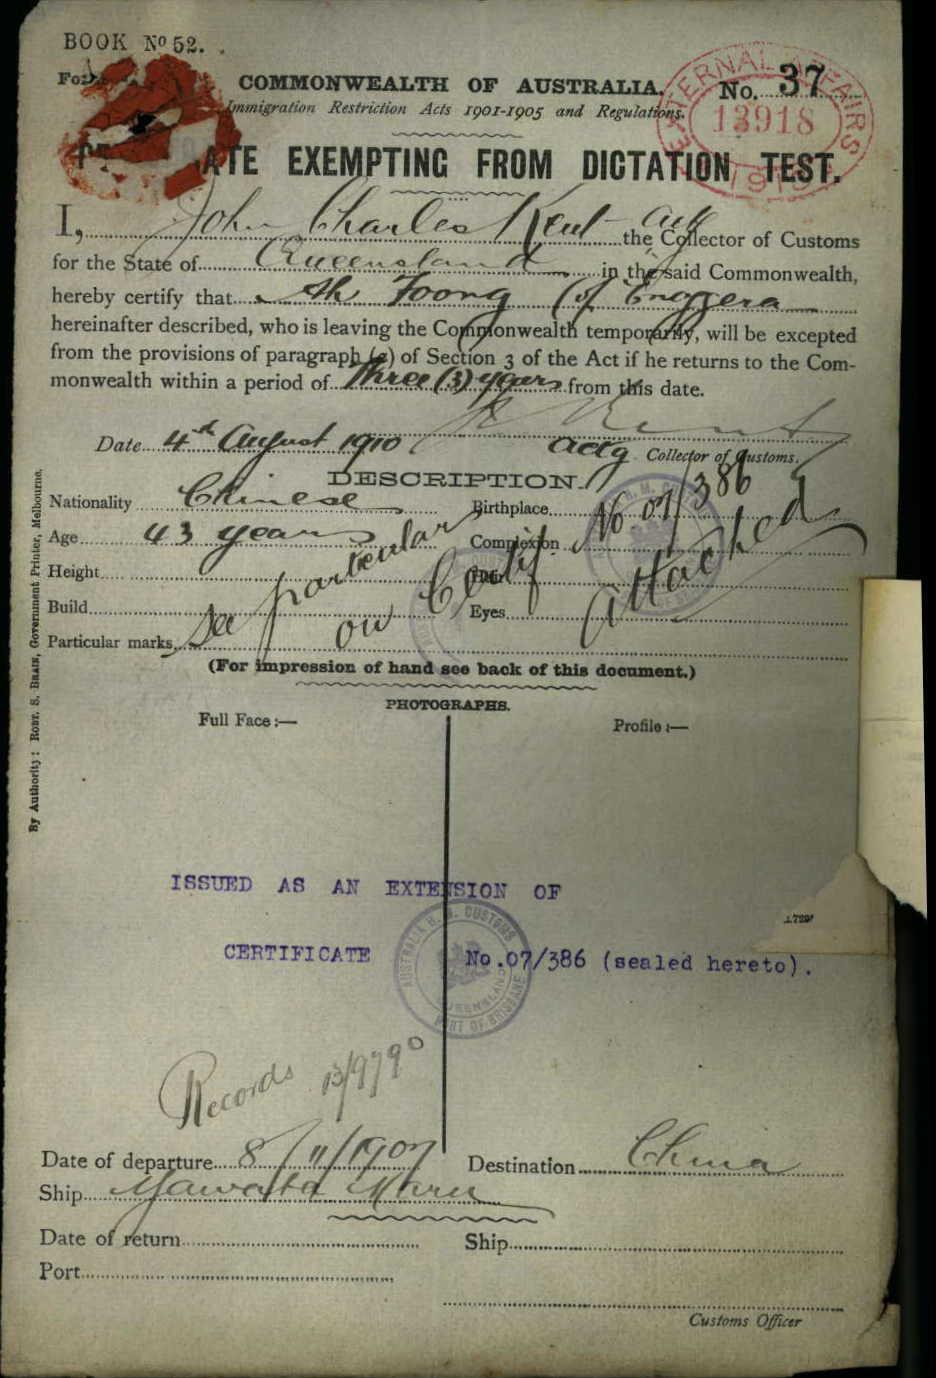 BOOK No 52.
COMMONWEALTH OF AUSTRALIA.
No. 37
Immigration Restriction Acts 1901-1905 and Regulations.
EXTERNAL AFFAIRS
13918
ATE EXEMPTING FROM DICTATION TEST.
I, John Charles Kent actg the Collector of Customs
for the State of Queensland in the said Commonwealth,
hereby certify that Ah Foong (of Enoggera
hereinafter described, who is leaving the Commonwealth temporarily, will be excepted
from the provisions of paragraph (a) of Section 3 of the Act if he returns to the Com-
monwealth within a period of three (3) years from this date.
Date 4th August 1910
Kent
actg Collector of Customs.
DESCRIPTION.
Nationality Chinese
Birthplace
Age 43 years
Complexion
Height
Hair
Build
Eyes
Particular marks
See particulars on Certif. No 07/386 attached
(For impression of hand see back of this document.)
PHOTOGRAPHS.
Full Face :—
Profile :—
By Authority: ROBT. S. BRAIN, Government Printer, Melbourne.
ISSUED AS AN EXTENSION OF
CERTIFICATE No.07/386 (sealed hereto).
AUSTRALIA H. M. CUSTOMS
QUEENSLAND
PORT OF BRISBANE
Records 13/9790
Date of departure 8/11/1907
Destination China
Ship Yawata Maru
Date of return
Ship
Port
Customs Officer